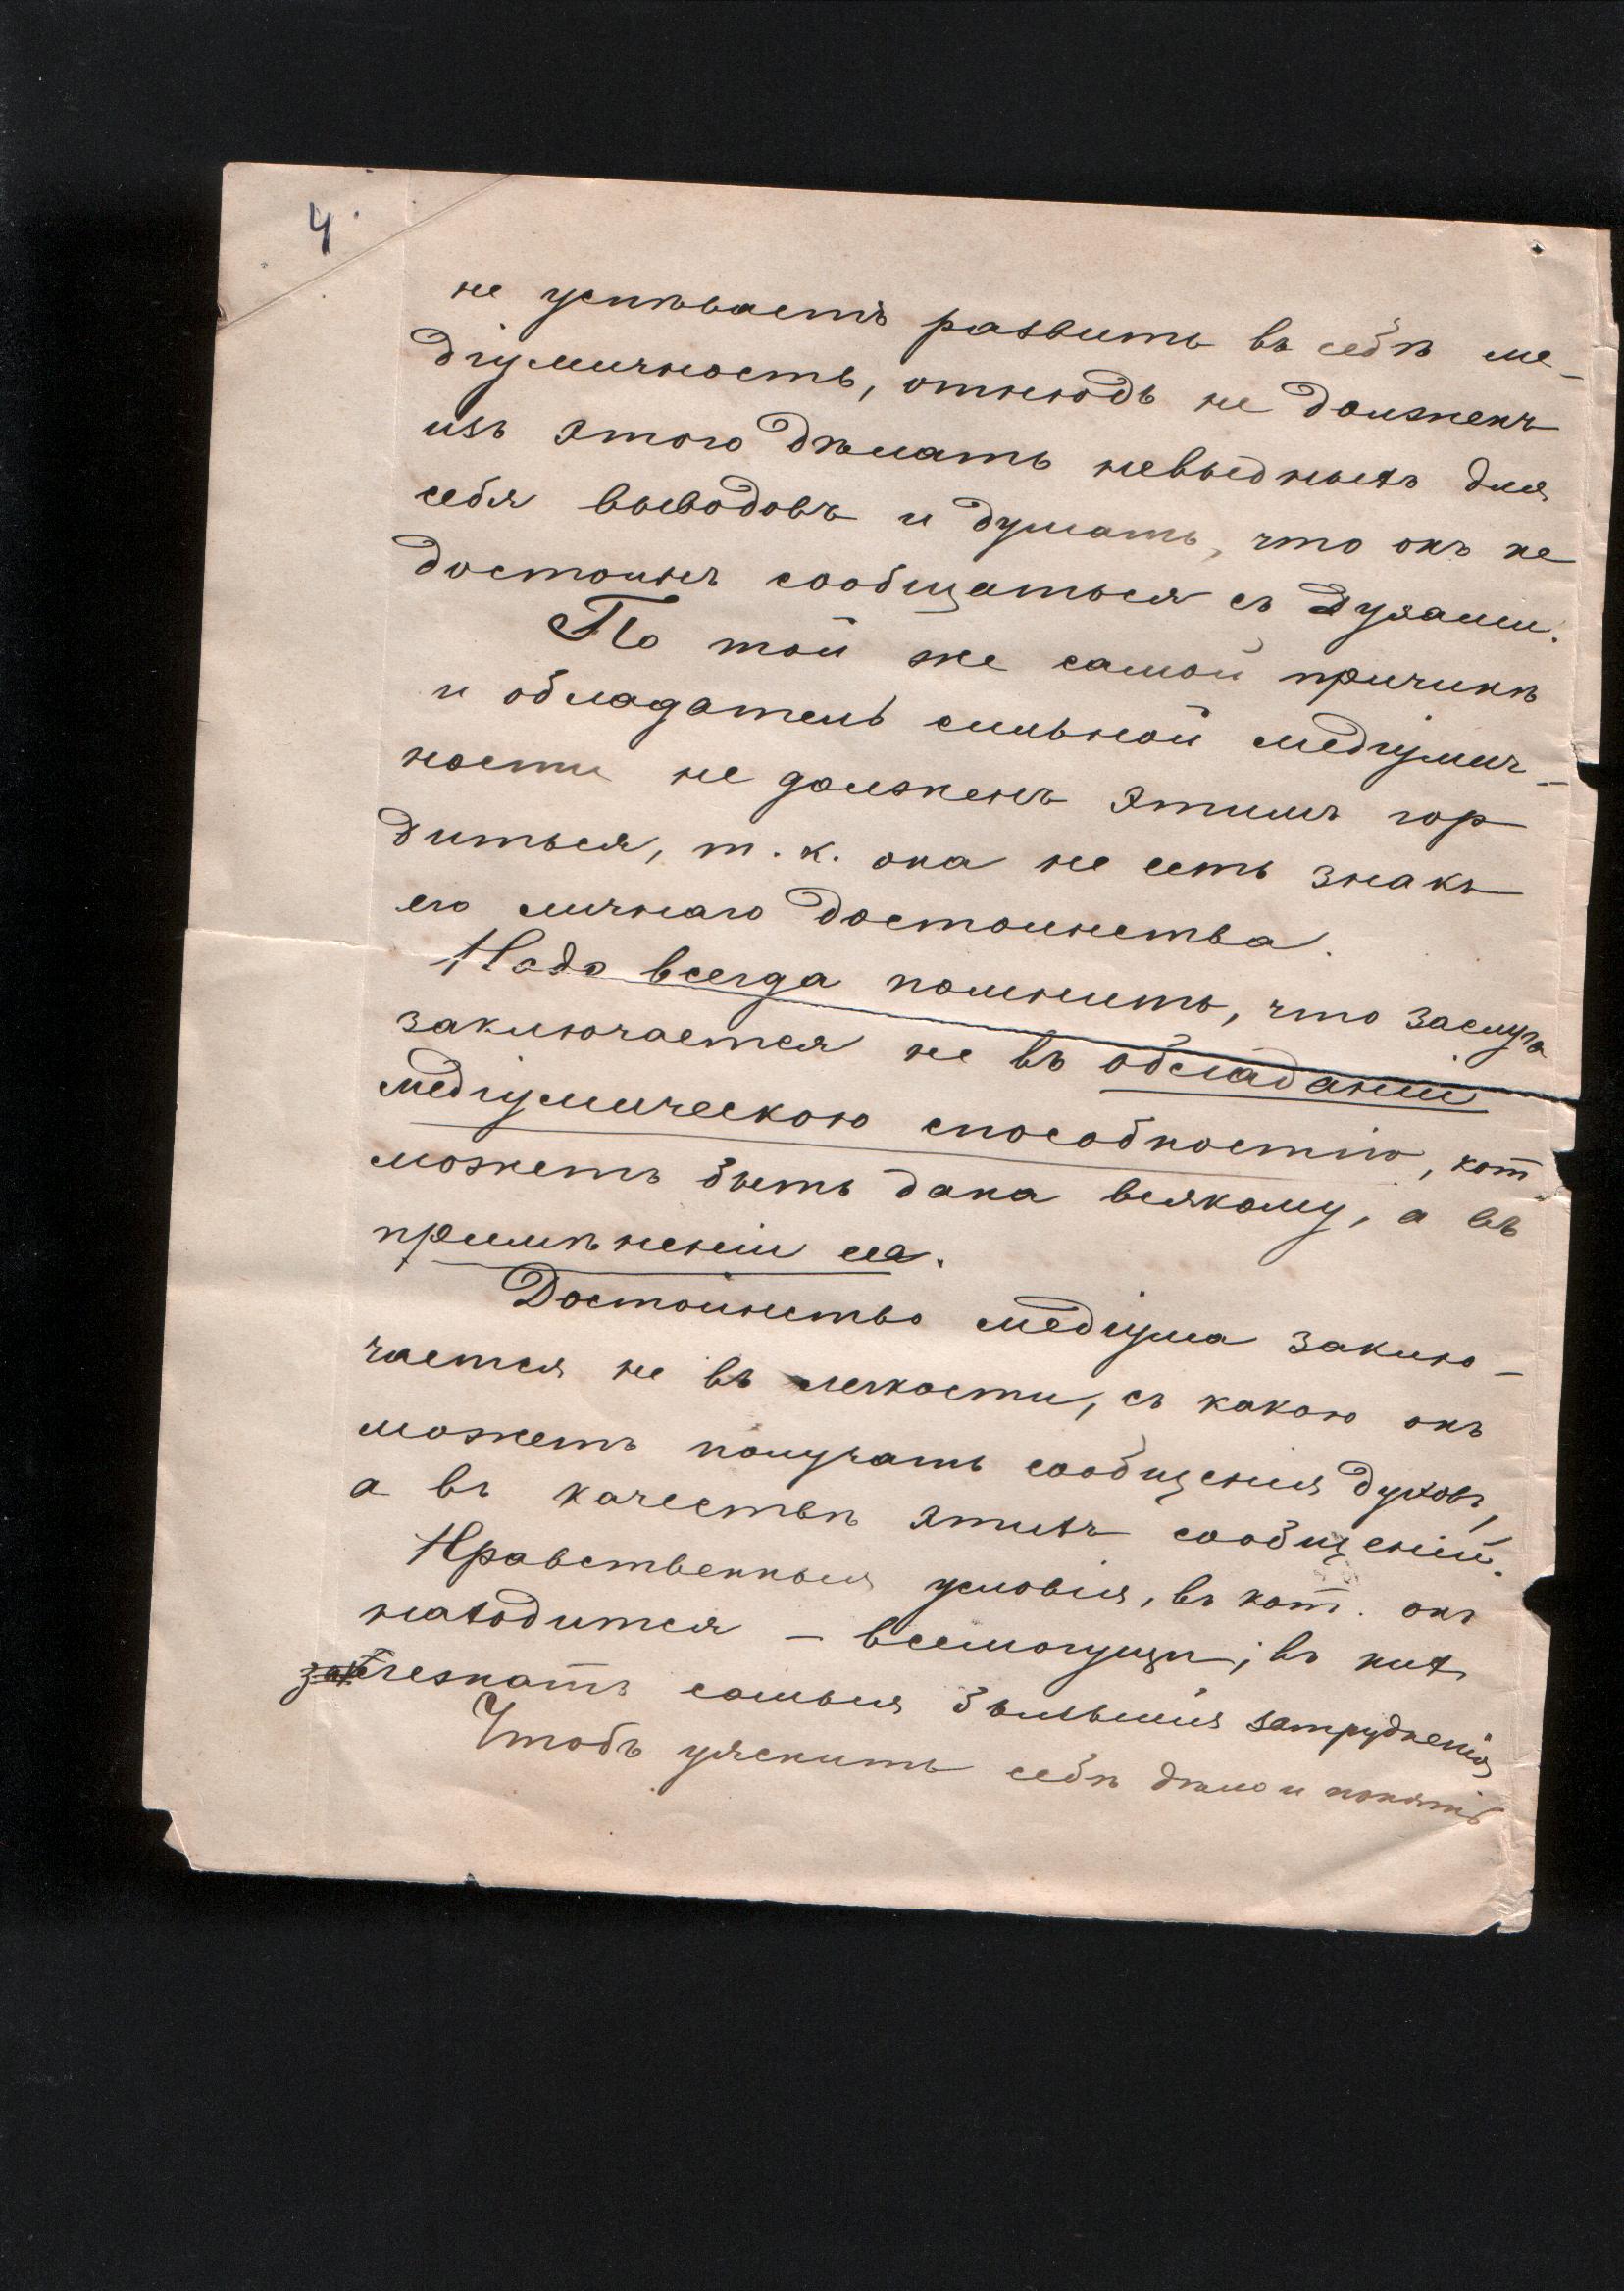 4.
не успѣваетъ развить въ себѣ ме-
діумичность, отнюдь не долженъ
изъ этого дѣлать невыдныхъ для
себя выводовъ и думать, что онъ не
достоинъ сообщаться съ Духами.
По той же самой причинѣ
и обладатель сильной медіумич-
ности не долженъ этимъ гор
диться, т. к. она не есть знакъ
его личнаго достоинства.
Надо всегда помнить, что заслуга
заключается не въ обладаніи
медіумическою способностію, кот.
можетъ быть дана всякому, а въ
примѣненіи ея.
Достоинство медіума заклю-
чается не въ легкости, съ какою онъ
можетъ получать сообщенія духовъ,
а въ качествѣ этихъ сообщеній.
Нравственныя условія, въ кот. онъ
находится - всемогущи; въ них
лежатъ самыя бо́льшія затрудненія
Чтобъ уяснить себѣ дѣло и понять